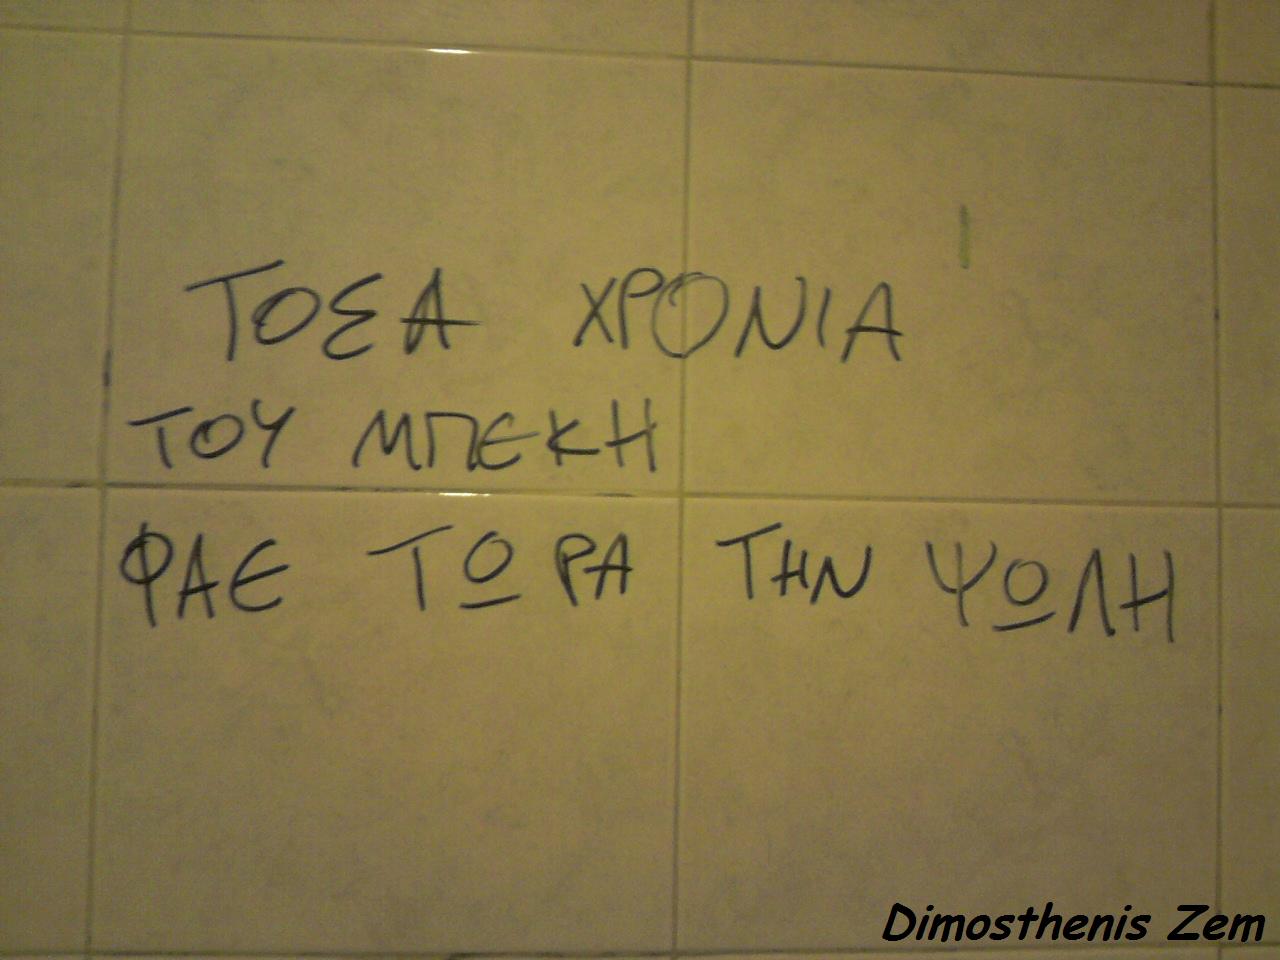 ΤΟΣΑ ΧΡΟΝΙΑ
ΤΟΥ ΜΠΕΚΗ
ΦΑΕ ΤΩΡΑ ΤΗΝ ΨΩΛΗ
Dimosthenis Zem